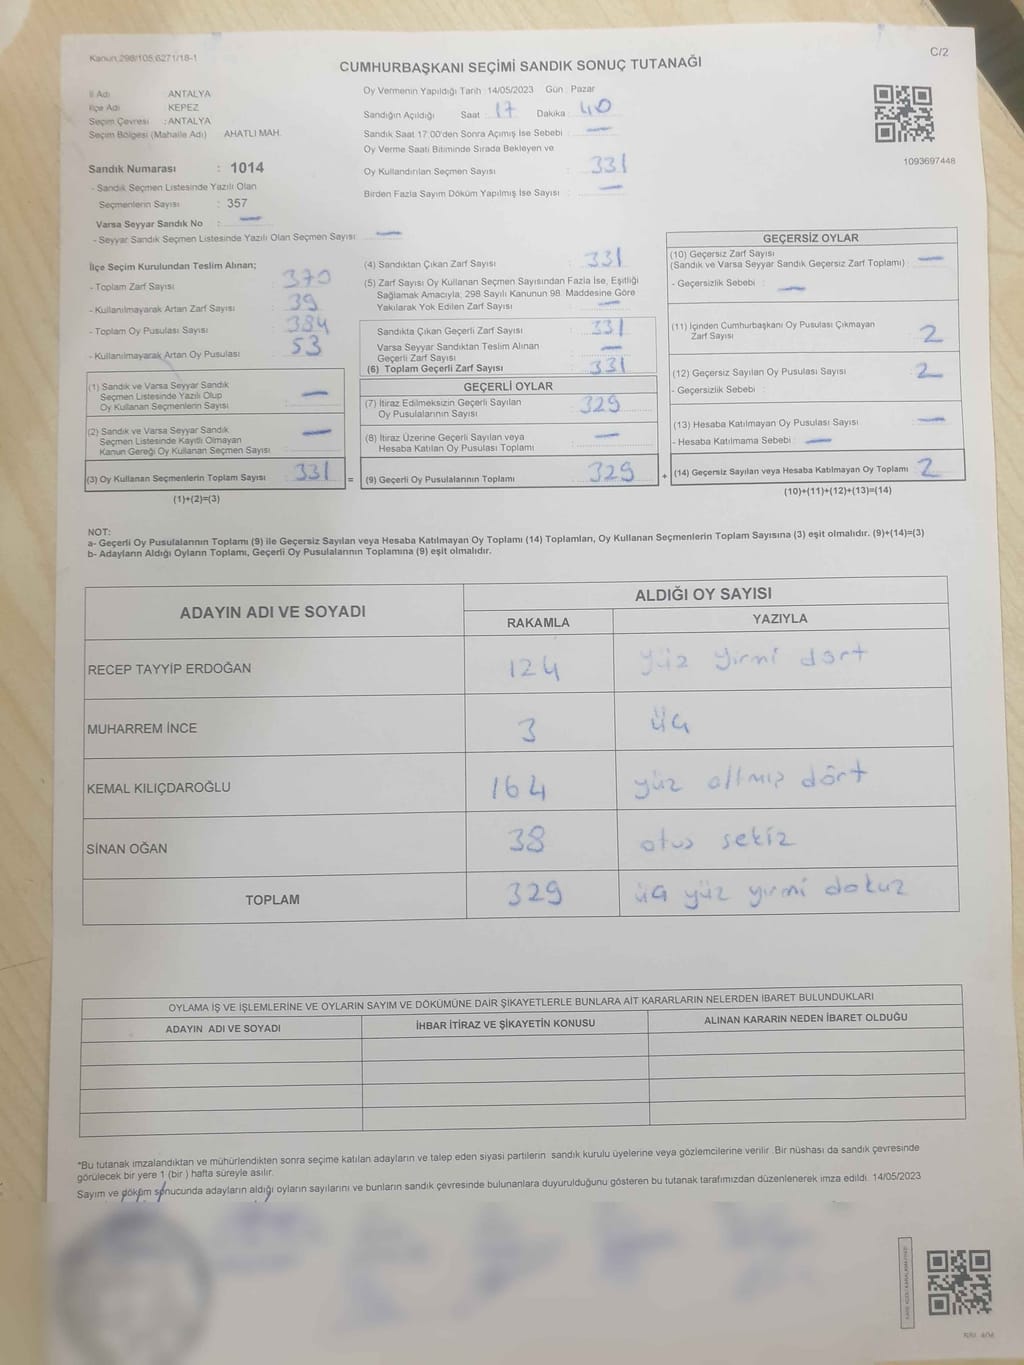 Kanun:298/105,6271/18-1
C/2
CUMHURBAŞKANI SEÇİMİ SANDIK SONUÇ TUTANAĞI
İl Adı : ANTALYA
İlçe Adı : KEPEZ
Seçim Çevresi : ANTALYA
Seçim Bölgesi (Mahalle Adı) AHATLI MAH.
Sandık Numarası : 1014
- Sandık Seçmen Listesinde Yazılı Olan
Seçmenlerin Sayısı : 357
Varsa Seyyar Sandık No : —
- Seyyar Sandık Seçmen Listesinde Yazılı Olan Seçmen Sayısı : —
Oy Vermenin Yapıldığı Tarih :14/05/2023 Gün : Pazar
Sandığın Açıldığı Saat : 17 Dakika : 40
Sandık Saat 17:00'den Sonra Açımış İse Sebebi : —
Oy Verme Saati Bitiminde Sırada Bekleyen ve
Oy Kullandırılan Seçmen Sayısı : 331
Birden Fazla Sayım Döküm Yapılmış İse Sayısı : —
1093697448
İlçe Seçim Kurulundan Teslim Alınan;
- Toplam Zarf Sayısı : 370
- Kullanılmayarak Artan Zarf Sayısı : 39
- Toplam Oy Pusulası Sayısı : 384
- Kullanılmayarak Artan Oy Pusulası : 53
(1) Sandık ve Varsa Seyyar Sandık
Seçmen Listesinde Yazılı Olup
Oy Kullanan Seçmenlerin Sayısı : —
(2) Sandık ve Varsa Seyyar Sandık
Seçmen Listesinde Kayıtlı Olmayan
Kanun Gereği Oy Kullanan Seçmen Sayısı : —
(3) Oy Kullanan Seçmenlerin Toplam Sayısı : 331
(1)+(2)=(3)
=
(4) Sandıktan Çıkan Zarf Sayısı : 331
(5) Zarf Sayısı Oy Kullanan Seçmen Sayısından Fazla İse, Eşitliği
Sağlamak Amacıyla; 298 Sayılı Kanunun 98. Maddesine Göre
Yakılarak Yok Edilen Zarf Sayısı : —
Sandıkta Çıkan Geçerli Zarf Sayısı : 331
Varsa Seyyar Sandıktan Teslim Alınan
Geçerli Zarf Sayısı : —
(6) Toplam Geçerli Zarf Sayısı : 331
GEÇERLİ OYLAR
(7) İtiraz Edilmeksizin Geçerli Sayılan
Oy Pusulalarının Sayısı : 329
(8) İtiraz Üzerine Geçerli Sayılan veya
Hesaba Katılan Oy Pusulası Toplamı : —
(9) Geçerli Oy Pusulalarının Toplamı : 329
+
GEÇERSİZ OYLAR
(10) Geçersiz Zarf Sayısı
(Sandık ve Varsa Seyyar Sandık Geçersiz Zarf Toplamı) : —
- Geçersizlik Sebebi : —
(11) İçinden Cumhurbaşkanı Oy Pusulası Çıkmayan
Zarf Sayısı : 2
(12) Geçersiz Sayılan Oy Pusulası Sayısı : 2
- Geçersizlik Sebebi :
(13) Hesaba Katılmayan Oy Pusulası Sayısı : —
- Hesaba Katılmama Sebebi : —
(14) Geçersiz Sayılan veya Hesaba Katılmayan Oy Toplamı : 2
(10)+(11)+(12)+(13)=(14)
NOT:
a- Geçerli Oy Pusulalarının Toplamı (9) ile Geçersiz Sayılan veya Hesaba Katılmayan Oy Toplamı (14) Toplamları, Oy Kullanan Seçmenlerin Toplam Sayısına (3) eşit olmalıdır. (9)+(14)=(3)
b- Adayların Aldığı Oyların Toplamı, Geçerli Oy Pusulalarının Toplamına (9) eşit olmalıdır.
ADAYIN ADI VE SOYADI
ALDIĞI OY SAYISI
RAKAMLA YAZIYLA
RECEP TAYYİP ERDOĞAN 124 yüz yirmi dört
MUHARREM İNCE 3 üç
KEMAL KILIÇDAROĞLU 164 yüz altmış dört
SİNAN OĞAN 38 otuz sekiz
TOPLAM 329 üç yüz yirmi dokuz
OYLAMA İŞ VE İŞLEMLERİNE VE OYLARIN SAYIM VE DÖKÜMÜNE DAİR ŞİKAYETLERLE BUNLARA AİT KARARLARIN NELERDEN İBARET BULUNDUKLARI
ADAYIN ADI VE SOYADI İHBAR İTİRAZ VE ŞİKAYETİN KONUSU ALINAN KARARIN NEDEN İBARET OLDUĞU
*Bu tutanak imzalandıktan ve mühürlendikten sonra seçime katılan adayların ve talep eden siyasi partilerin sandık kurulu üyelerine veya gözlemcilerine verilir .Bir nüshası da sandık çevresinde
görülecek bir yere 1 (bir ) hafta süreyle asılır.
Sayım ve döküm sonucunda adayların aldığı oyların sayılarını ve bunların sandık çevresinde bulunanlara duyurulduğunu gösteren bu tutanak tarafımızdan düzenlenerek imza edildi. 14/05/2023